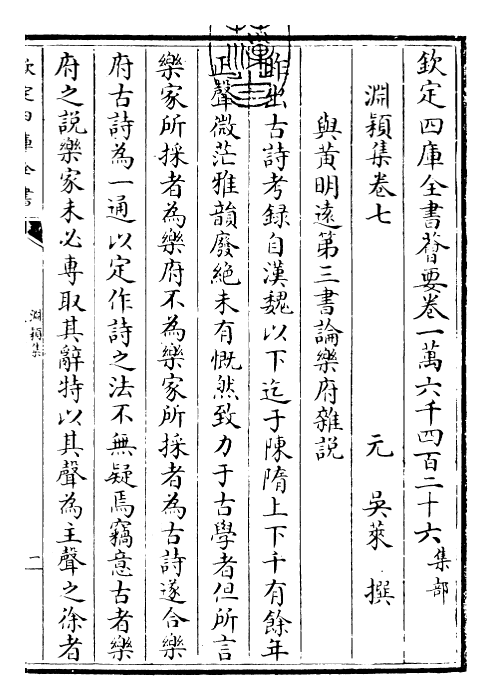 欽定四庫全書薈要卷一萬六千四百二十六集部
淵穎集卷七
元 吳萊 撰
與黃明遠第三書論樂府雜說
昨出古詩考録自漢魏以下迄于陳隋上下千有餘年
正聲微茫雅韻廢絶未有慨然致力于古學者但所言
樂家所採者為樂府不為樂家所採者為古詩遂合樂
府古詩為一通以定作詩之法不無疑焉竊意古者樂
府之說樂家未必專取其辭特以其聲為主聲之徐者
欽定四庫全書
淵穎集